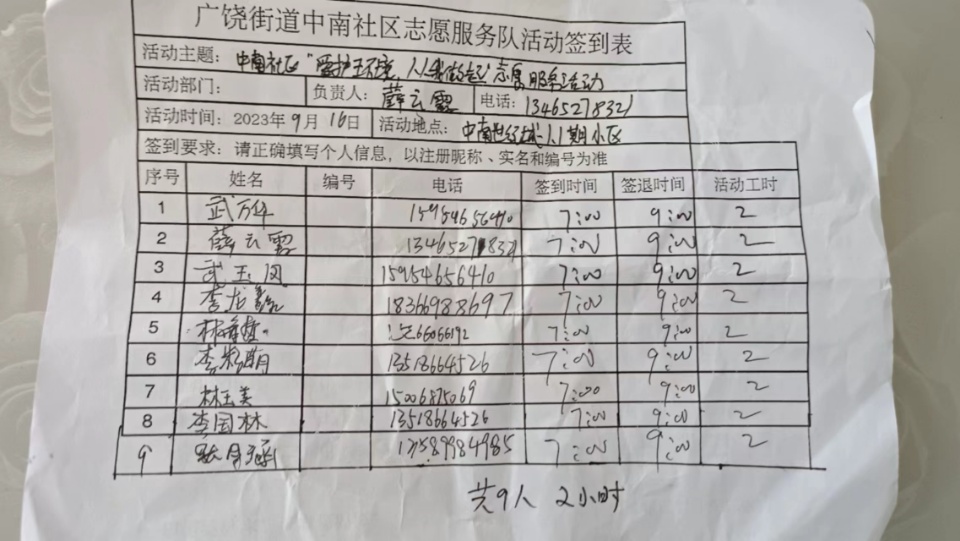 广饶街道中南社区志愿服务队活动签到表
活动主题: 中南社区"爱护环境,人人有责"志愿服务活动
活动部门: 负责人: 薛云霞 电话: 13465278321
活动时间: 2023年9月16日 活动地点: 中南世纪城1.1期小区
签到要求: 请正确填写个人信息，以注册昵称、实名和编号为准
序号 姓名 编号 电话 签到时间 签退时间 活动工时
1 武万华 15954656410 7:00 9:00 2
2 薛云霞 13465278321 7:00 9:00 2
3 武玉凤 15954656410 7:00 9:00 2
4 李龙 18366988697 7:00 9:00 2
5 林 7:00 9:00 2
6 李 13518664526 7:00 9:00 2
7 林玉美 15006875069 7:00 9:00 2
8 李国林 13518664526 7:00 9:00 2
9 7:00 9:00 2
共9人 2小时